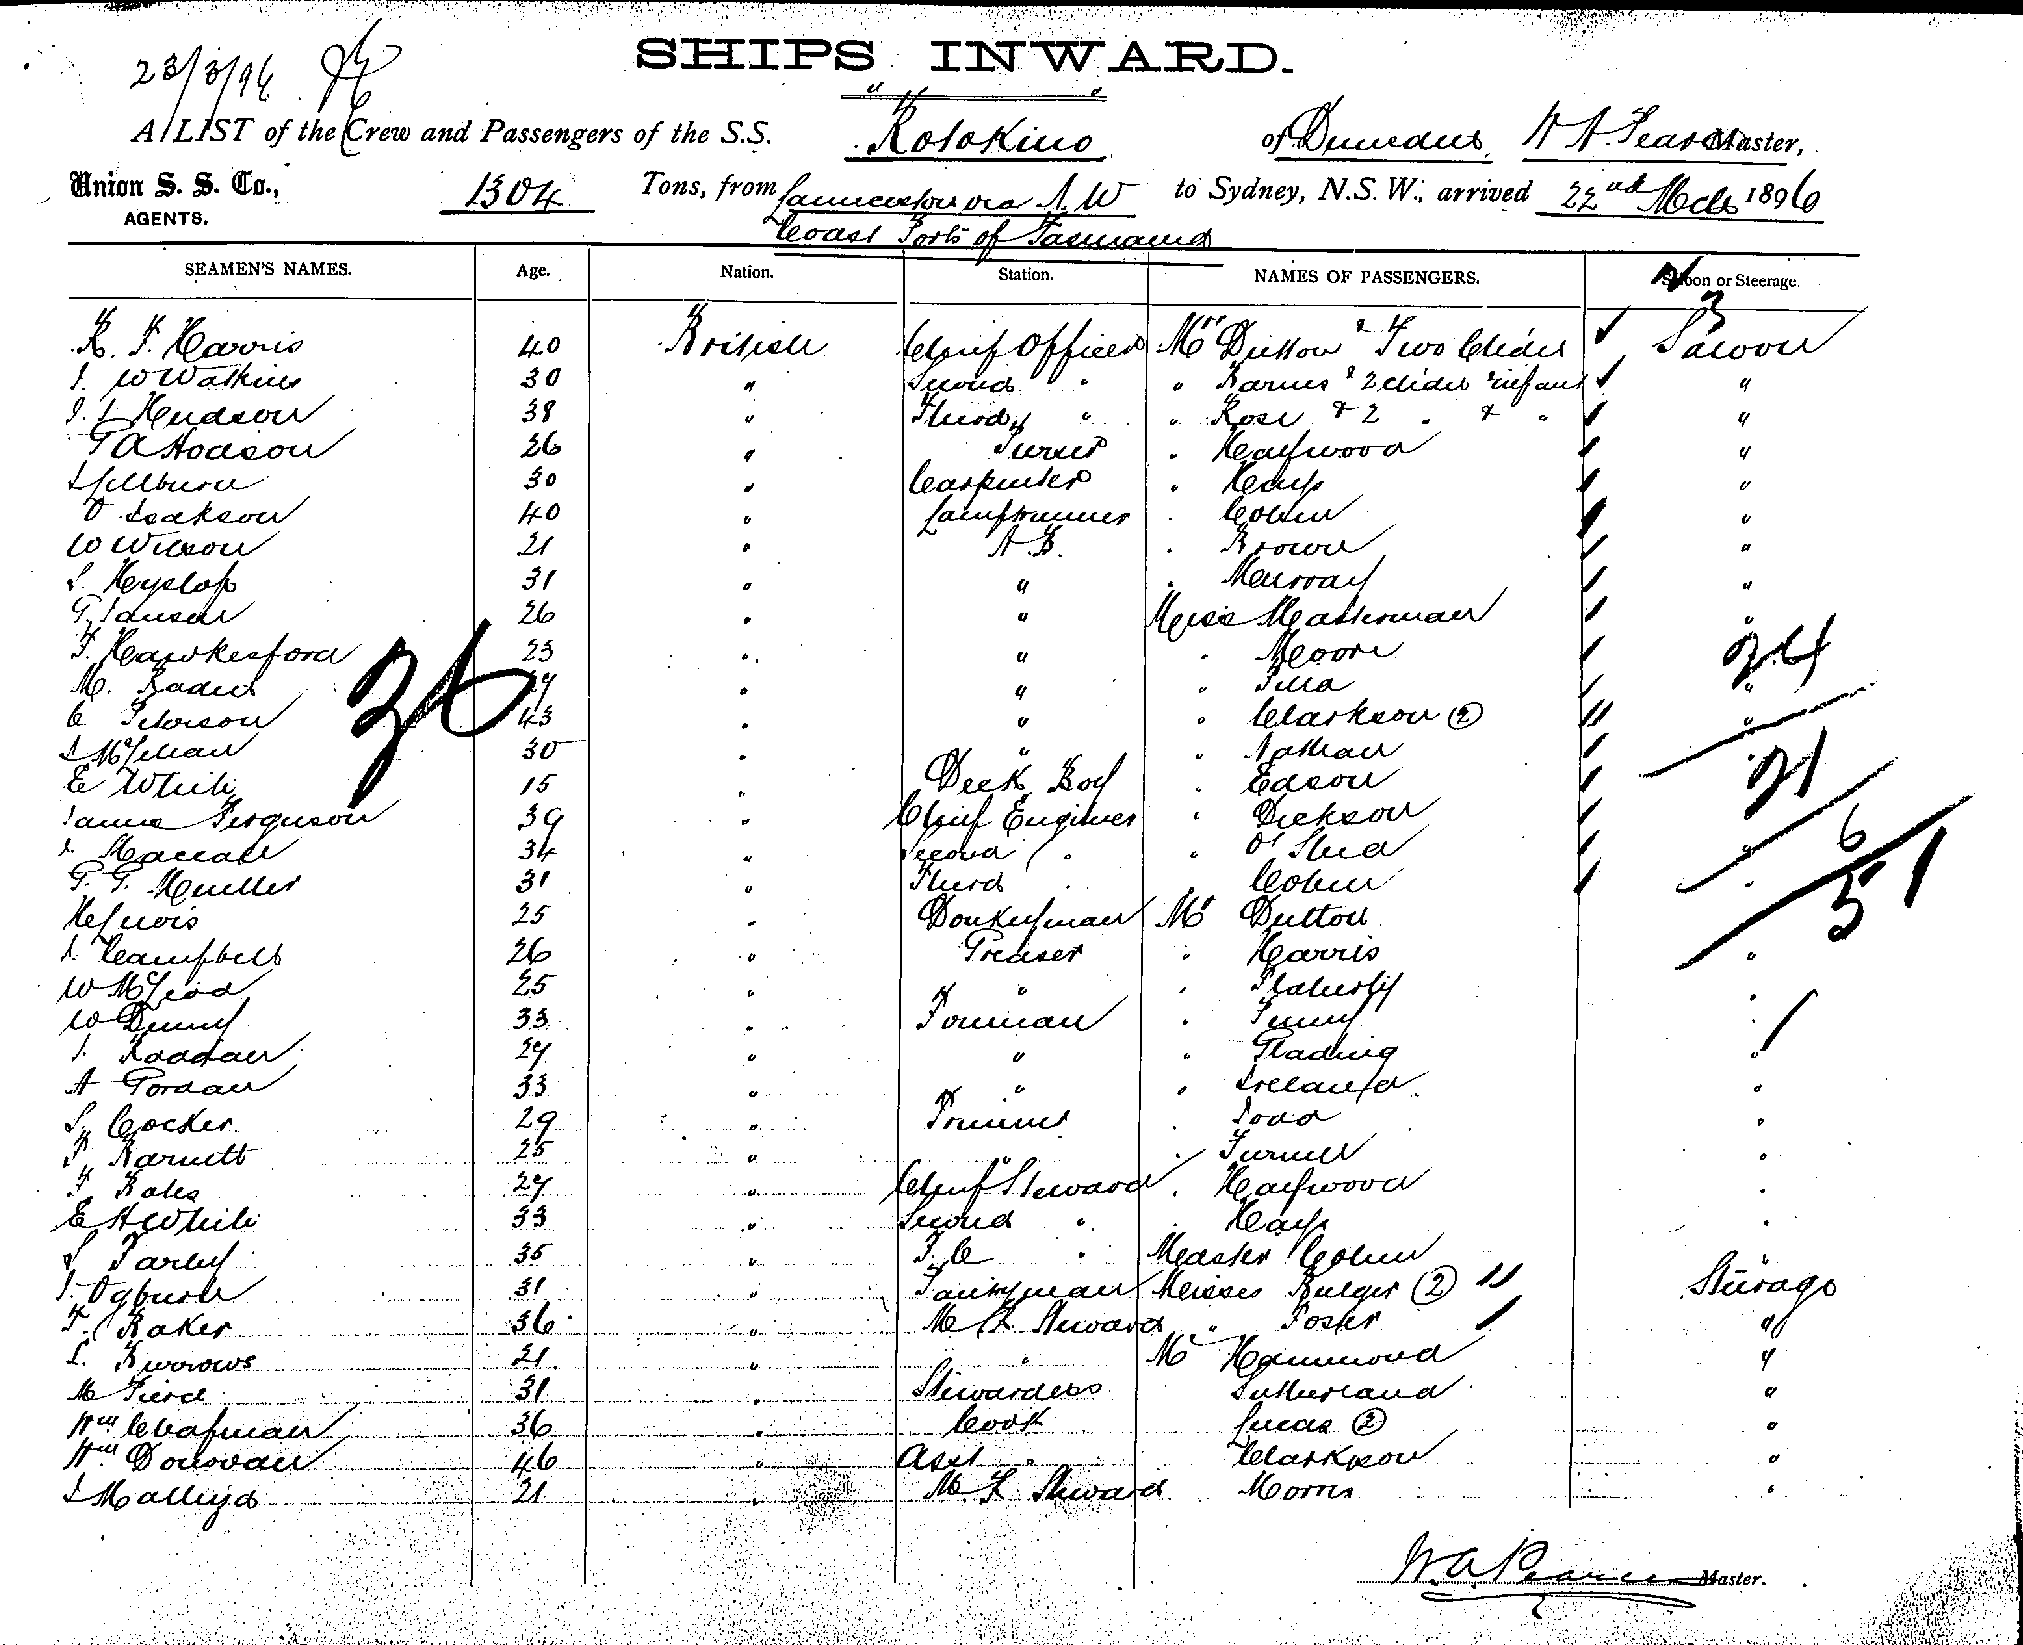 23/3/96
SHIPS INWARD.
A LIST of the Crew and Passengers of the S.S. Rotokino of Dunedin W A Pearce Master,
Union S. S. Co., AGENTS. 1304 Tons, from Launceston via N. W to Sydney, N.S.W., arrived 22nd Mch 1896
Coast Ports of Tasmania
SEAMEN'S NAMES. Age. Nation. Station. NAMES OF PASSENGERS. Saloon or Steerage.
3
R. F. Harris 40 British Chief Officer Mrs Dutton & Two Childn Saloon
J. W Watkins 30 " Second " " Barnes & 2 childn & infant "
38 " Third " " Rose & 2 " & " "
G A Hodson 26 " Purser " Haywood "
30 " Carpenter " Hays "
O Isakson 40 " Lamptrimmer " Cohen "
W Wilson 21 " A.B. " Brown "
J. Hyslop 31 " " " Murray "
G. Jansen 26 " " Miss Masterman "
F. Hawkesford 23 " " " Moore 24
M. Bader 27 " " " "
C Peterson 43 " " " Clarkson (2) "
J McLellan 30 " " " Nathan
E White 15 " Deck Boy " Edson 21
James Ferguson 39 " Chief Engineer " Dickson 6
J. Maccall 34 " Second " " O'Shea "
G. G. Mueller 31 " Third " " Cohen 51
H Lewis 25 " Donkeyman Mr Dutton
J. Campbell 26 " Greaser " Harris "
W McLeod 25 " " " Flaherty "
W Denny 33 " Foreman " "
27 " " " Glading "
A Gordan 33 " " " Ireland "
S. Cocker 29 " Trimmer " Todd "
F. Barnett 25 " " " Turner "
F Bates 27 " Chief Steward " Haywood "
E H White 33 " Second " " Hays "
S Farley 35 " F. C " Master Cohen "
J. Ogburn 31 " Pantryman Misses Bulger (2) Steerage
F. Baker 36 " M & L Steward " Foster "
L. Burrows 21 " " Mr Hammond "
M Pierce 31 " Stewardess Sutherland "
Wm Chapman 36 " Cook Lucas (2) "
Wm Donovan 46 " Asst " Clarkson "
21 " M. L Steward Morris "
36
W. A. Pearce Master.